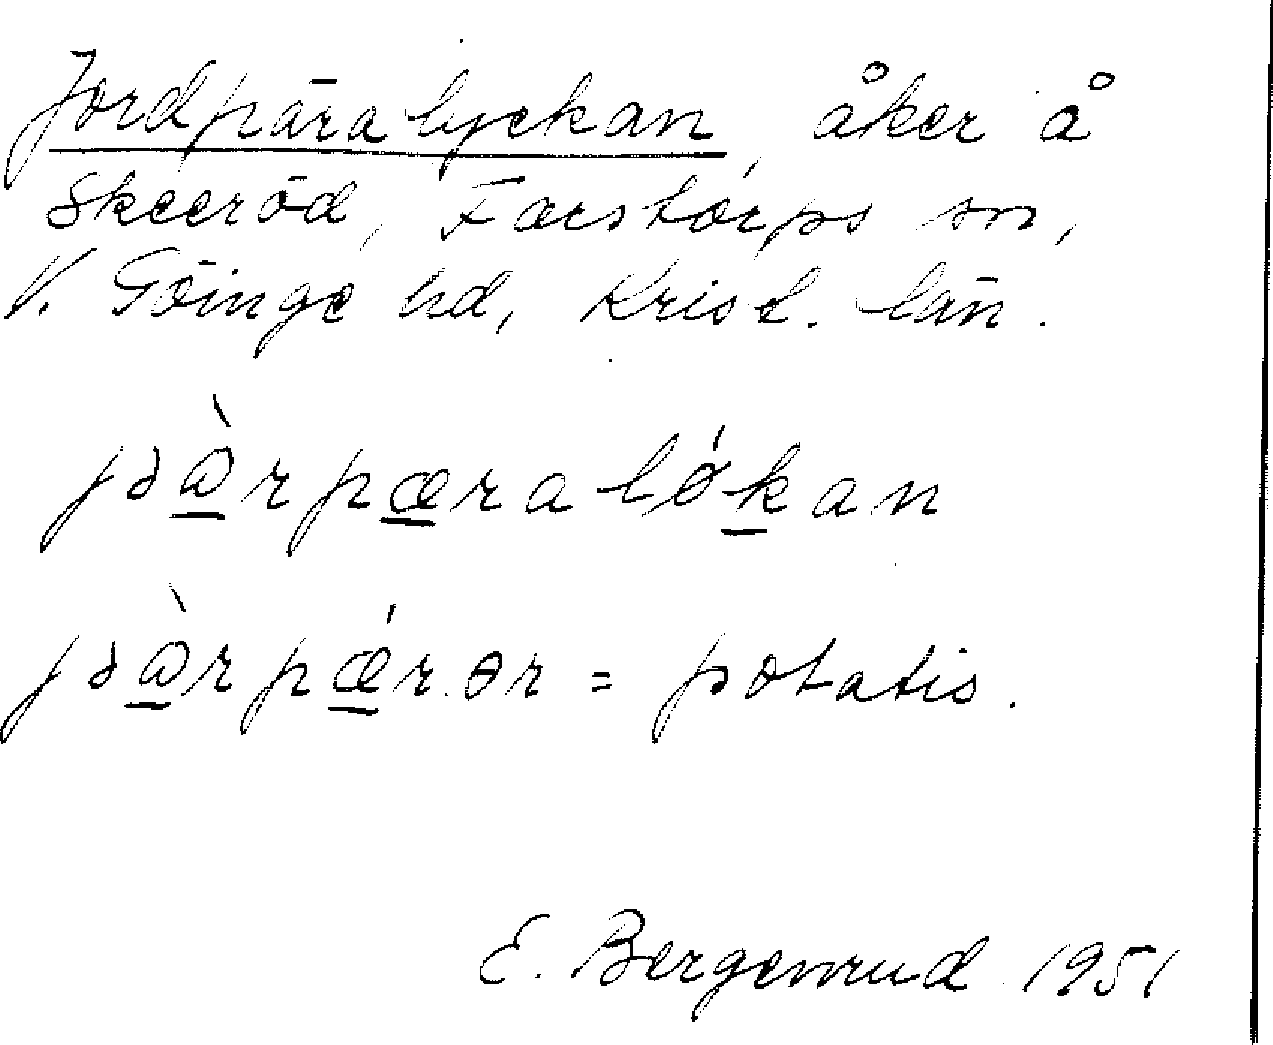 Jordpäralyckan, åker å
Skeeröd, Farstorps sn,
V. Göinge hd, Krist. län.
jəàrpæralǿkan
jəàrpǽrər = potatis.
E. Bergenrud 1951